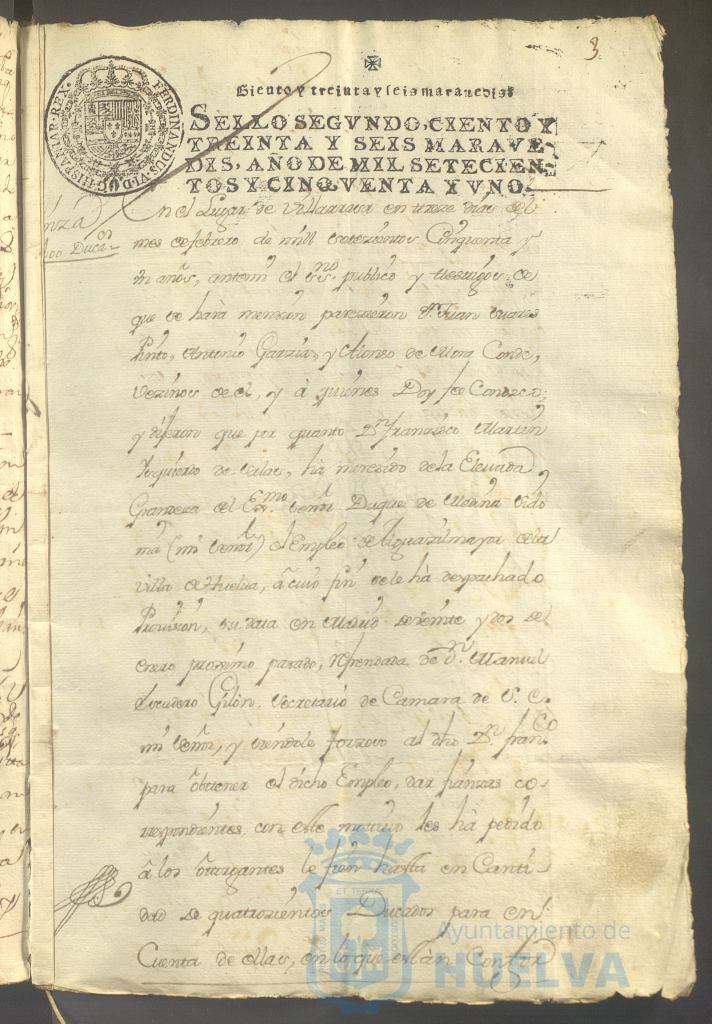 3
Ciento y treinta y seis maravedis
SELLO SEGVNDO, CIENTO Y
TREINTA Y SEIS MARAVE-
DIS, AÑO DE MIL SETECIEN-
TOS Y CINQVENTA Y VNO.
FERDINANDUS.VI.D.G.HISPANIAR.REX.
nza
400 Duc.os
En el Lugar de Villarrasa en treze dias del
mes de febrero de mill setezientos Cinquenta y
Un años, antemi el Ssno. publico y testigos de
que se hará menzion parezieron Dn. Juan Suares
Pinto, Antonio Garzia, y Alonso de Mora Conde,
Vezinos de el, y á quienes Doy fee Conozco,
y dijeron que por quanto Dn. francisco Martin
Izquierdo de Salas, há merezido de la Elevada
Grandeza del Exmo. Señor Duque de Medina Sido
nia (mi señor) el Empleo de Alguazil mayor de la
Villa de Huelva, á cuio fin se le há despachado
Provision, su data en Madrid de veinte y dos de
enero proximo pasado, refrendada de Dn. Manuel
Escudero Gilón, Secretario de Camara de S. E.
mi señor, y siendole forzoso al dho Dn. fran.co
para obttener el dicho Empleo, dar fianzas co-
rrespondientes, con este motivo les há pedido
á los otorgantes le fien hasta en Canti
dad de quatrozientos Ducados para en
Cuenta de ellas, en lo que están Confor
Ayuntamiento de
HUELVA